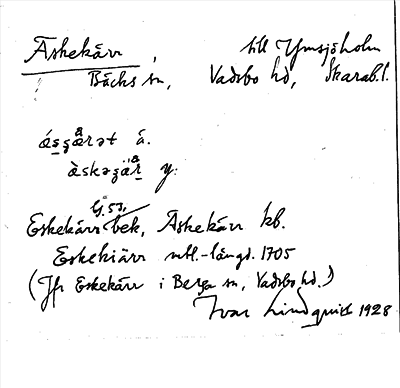 Äskekärr, till Ymsjöholm
Bäcks sn, Vadsbo hd, Skarab. l.
á. 
y.
G. 53,
Eskekärr bek, Äskekärr kb.
Eskekiärr mtl.-längd. 1705
(Jfr Eskekärr i Berga sn, Vadsbo hd.)
Ivar Lindquist 1928